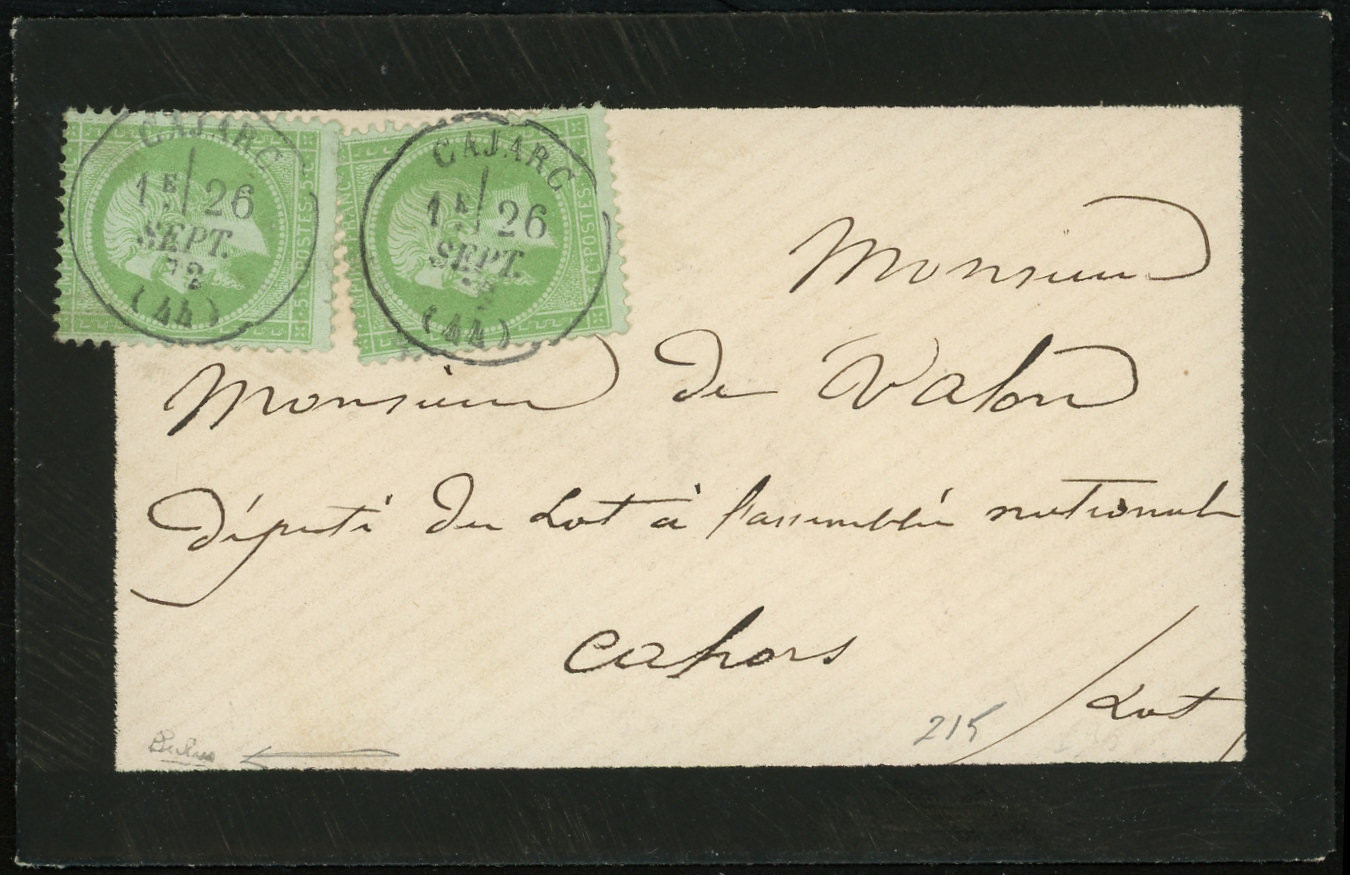 CAJARC
1E 26
SEPT.
72
(44)
POSTES 5
CAJARC
1E 26
SEPT.
(44)
FRANC
C·POSTES
Monsieur
Monsieur De Valon
Député du Lot à l'assemblée nationale
Cahors
Lot
215